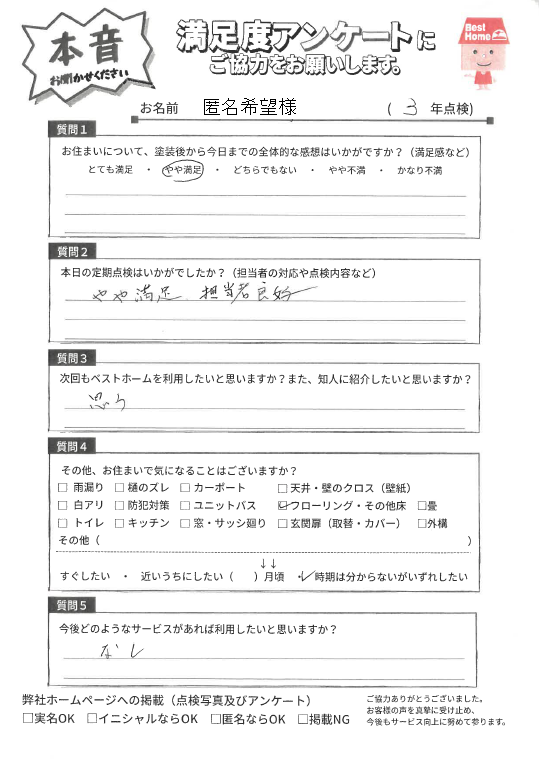 本音
お聞かせください
満足度アンケートに
ご協力をお願いします。
Best Home
お名前 匿名希望様 ( 3 年点検)
質問1
お住まいについて、塗装後から今日までの全体的な感想はいかがですか？（満足感など）
とても満足 ・ やや満足 ・ どちらでもない ・ やや不満 ・ かなり不満
質問2
本日の定期点検はいかがでしたか？（担当者の対応や点検内容など）
やや満足 担当者良好
質問3
次回もベストホームを利用したいと思いますか？また、知人に紹介したいと思いますか？
思う
質問4
その他、お住まいで気になることはございますか？
□ 雨漏り □ 樋のズレ □ カーポート □ 天井・壁のクロス（壁紙）
□ 白アリ □ 防犯対策 □ ユニットバス ☑ フローリング・その他床 □畳
□ トイレ □ キッチン □ 窓・サッシ廻り □ 玄関扉（取替・カバー） □外構
その他（ ）
↓↓
すぐしたい ・ 近いうちにしたい（ ）月頃 ・✓時期は分からないがいずれしたい
質問5
今後どのようなサービスがあれば利用したいと思いますか？
なし
弊社ホームページへの掲載（点検写真及びアンケート）
□実名OK □イニシャルならOK □匿名ならOK □掲載NG
ご協力ありがとうございました。
お客様の声を真摯に受け止め、
今後もサービス向上に努めて参ります。